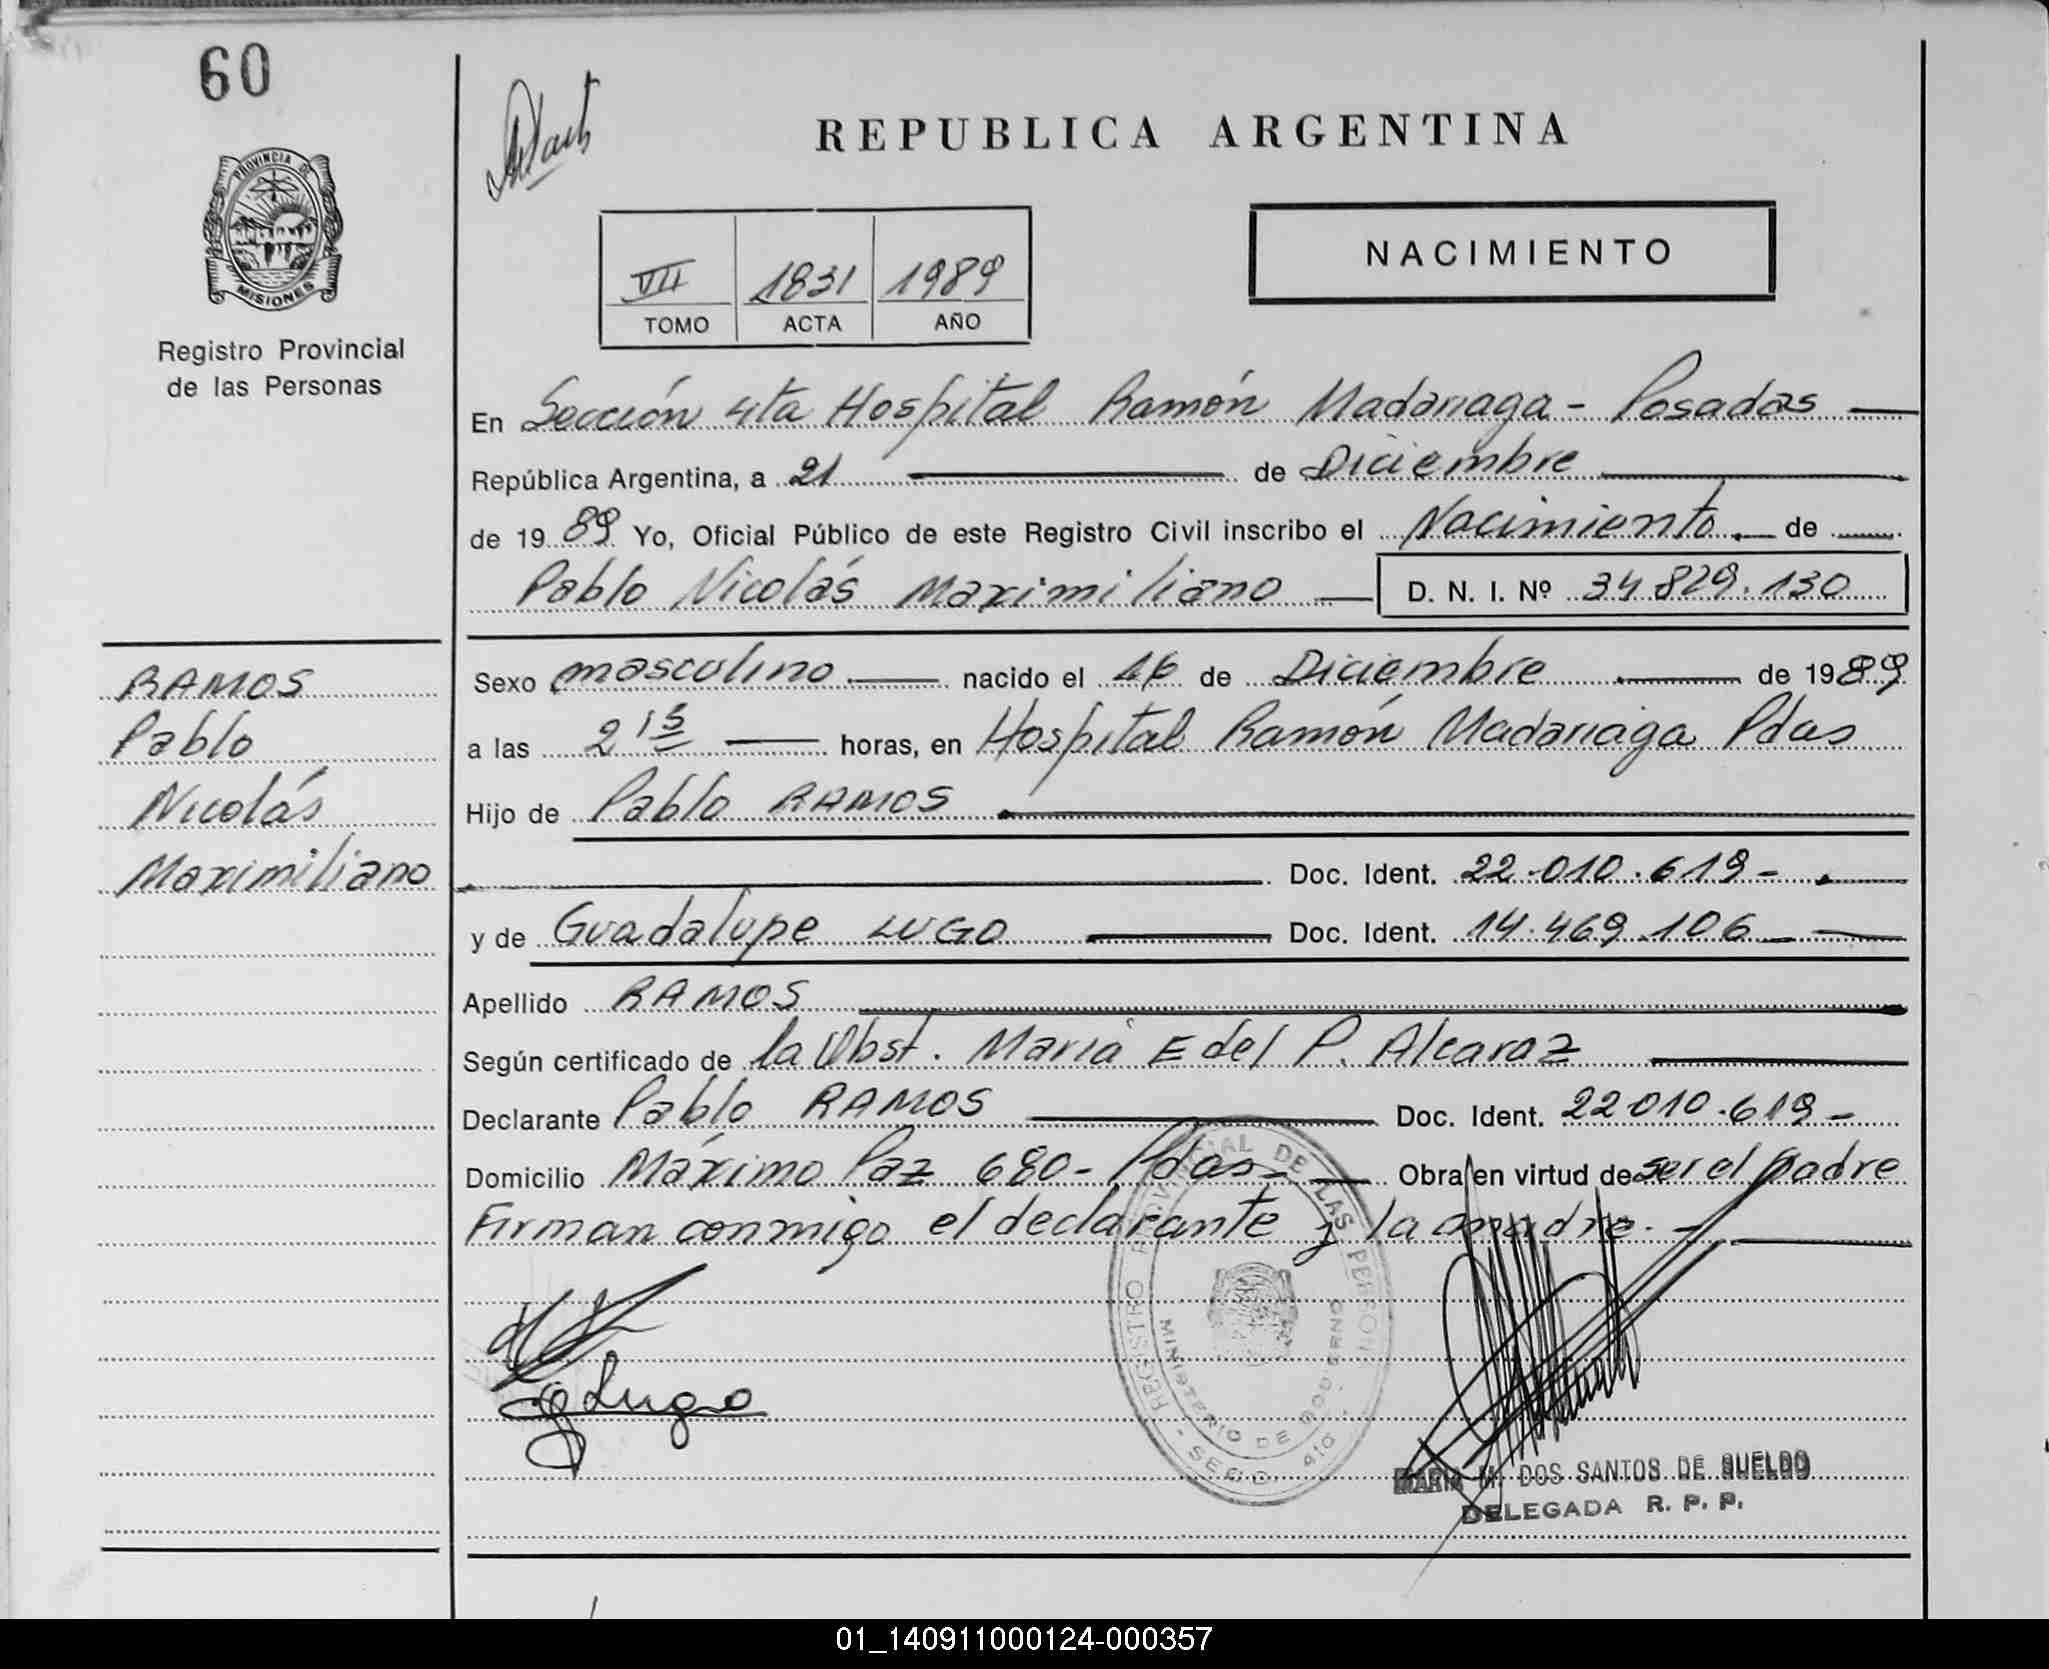 60
REPUBLICA ARGENTINA
PROVINCIA DE
MISIONES
Registro Provincial
de las Personas
VII 1831 1989
TOMO ACTA AÑO
NACIMIENTO
En Sección 4ta Hospital Ramón Madariaga - Posadas
República Argentina, a 21 de Diciembre
de 1989 Yo, Oficial Público de este Registro Civil inscribo el Nacimiento de
Pablo Nicolás Maximiliano D. N. I. Nº 34.829.130
RAMOS
Pablo
Nicolás
Maximiliano
Sexo masculino nacido el 16 de Diciembre de 1989
a las 2 15 horas, en Hospital Ramón Madariaga Pdas
Hijo de Pablo RAMOS
Doc. Ident. 22.010.619-
y de Guadalupe LUGO Doc. Ident. 14.469.106
Apellido RAMOS
Según certificado de la Obst. María E del P. Alcaraz
Declarante Pablo RAMOS Doc. Ident. 22.010.619-
Domicilio Máximo Paz 680- Pdas- Obra en virtud de ser el padre
Firman conmigo el declarante y la madre.-
Lugo
REGISTRO PROVINCIAL DE LAS PERSONAS
MINISTERIO DE GOBIERNO
MARIA M. DOS SANTOS DE SUELDO
DELEGADA R. P. P.
01_140911000124-000357